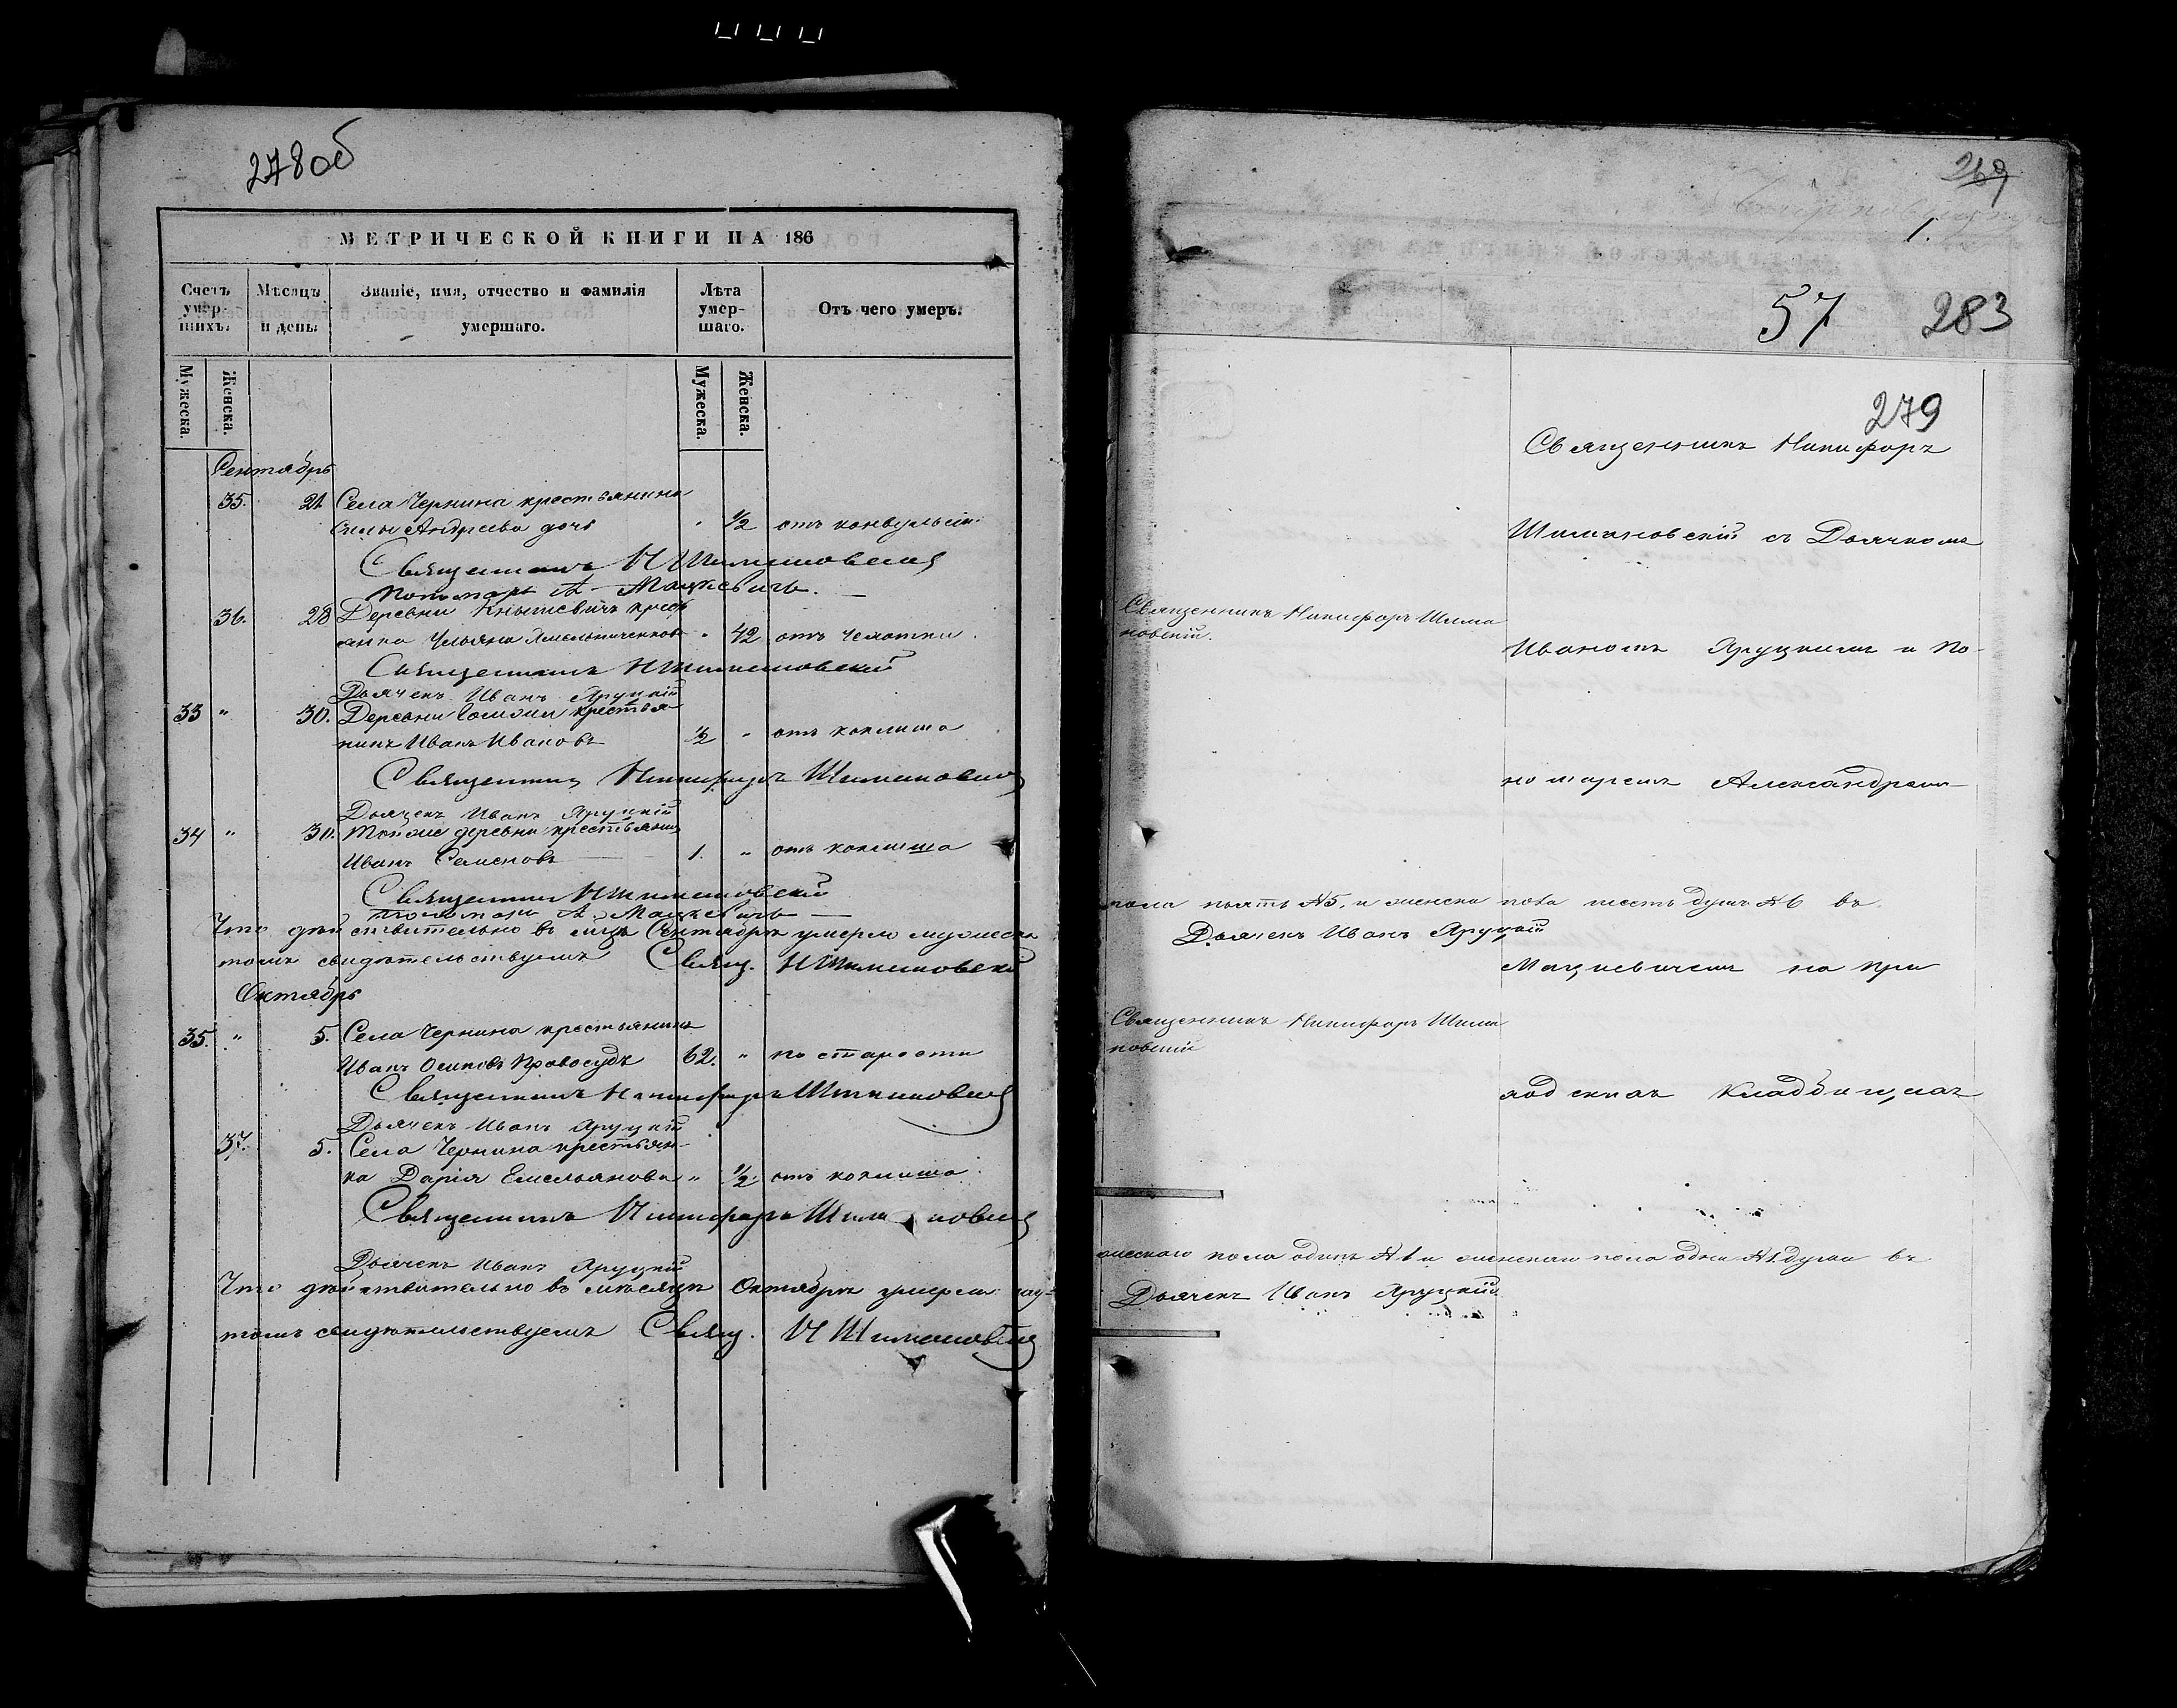 278 об
МЕТРИЧЕСКОЙ КНИГИ НА 186
Счетъ умер-шихъ.
Мѣсяцъ и день.
Званіе, имя, отчество и фамилія умершаго.
Лѣта умер-шаго.
Отъ чего умеръ.
Мужеска.
Женска.
Мужеска.
Женска.
Сентябрь
35. 21 Села Чернина крестьянина
Андреева дочь " 1/2 отъ конвульсіи
Священникъ Н Шимановскій
Пономарь А Мацкевичъ.
36. 28 Деревни кресть
янка Ульяна " 42 отъ чемотки.
Священникъ Н Шимановскій
Дьячекъ Иванъ Яруцкій
33 " 30. Деревни крестья-
нинъ Иванъ Ивановъ 1/2 " отъ коклиша
Священникъ Никифоръ Шимановскій
Дьячекъ Иванъ Яруцкій
34 " 30. Тойже деревни крестьянинъ
Иванъ Семеновъ 1. " отъ коклиша
Священникъ Н Шимановскій
Пономарь А Мацкевичъ
Что дѣйствительно въ Сентябрѣ умерло мужеска
томъ свидѣтельствуемъ Свящ. Н Шимановскій
Октябрь
35. " 5. Села Чернина крестьянинъ
Иванъ Осиповъ Правосудъ 62. " по старости
Священникъ Никифоръ Шимановскій
Дьячекъ Иванъ Яруцкій
37. 5. Села Чернина крестьян-
ка Дарія Емельянова " 1/2. отъ коклиша
Священникъ Никифоръ Шимановскій
Дьячекъ Иванъ Яруцкій
Что дѣйствительно въ мѣсяцѣ Октябрѣ умерли му-
томъ свидѣтельствуемъ Свящ. Н Шимановскій
269
1.
57 283
279
Священникъ Никифоръ
Шимановскій съ Дьячкомъ
Священникъ Никифоръ Шима
новскій.
Иваномъ Яруцкимъ и По-
номаремъ Александромъ
пола пять №5, и женска пола шесть душъ №6 въ
Дьячекъ Иванъ Яруцкій
Мацкевичемъ на при
Священникъ Никифоръ Шима
новскій
ходскихъ Кладбищахъ
жескаго пола одинъ №1 и женскаго пола одна №1 душа въ
Дьячекъ Иванъ Яруцкій